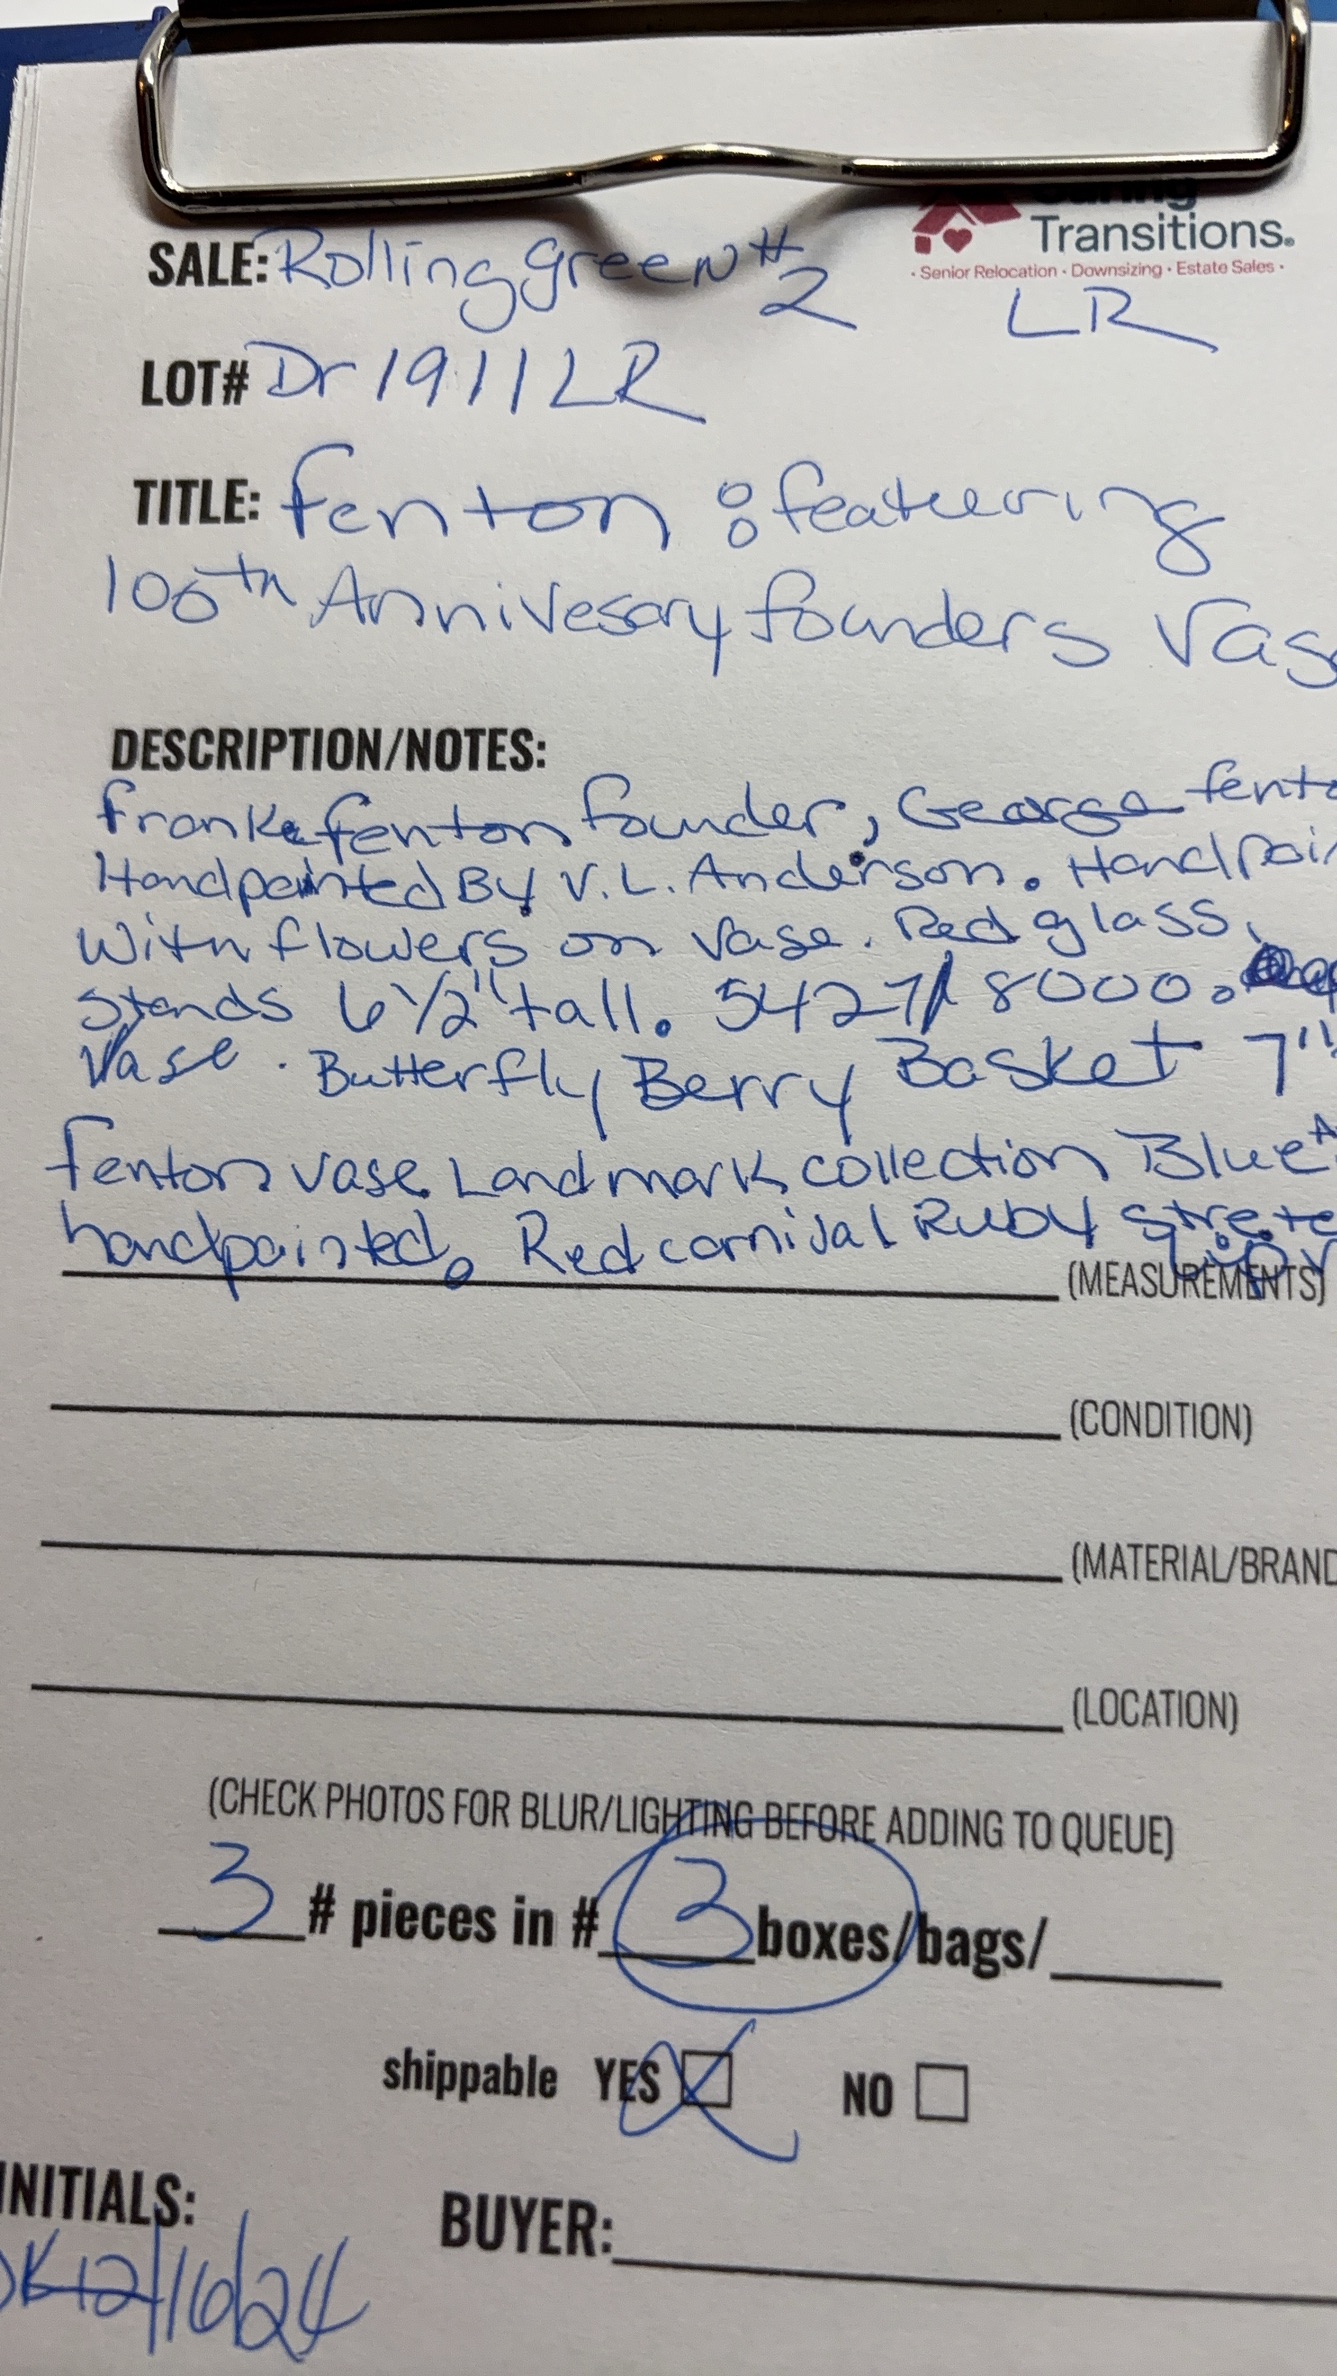 Caring
Transitions®
· Senior Relocation · Downsizing · Estate Sales ·
SALE: Rolling green #2 LR
LOT# Dr 1911LR
TITLE: Fenton : featuering
100th Annivesary founders Vase
DESCRIPTION/NOTES:
Frank fenton founder, George fento
Handpainted By V.L. Anderson. Handpain
With flowers on vase. Red glass,
Stands 6 1/2" tall. 5427/8000.
Vase. Butterfly Berry Basket 7"
Fenton vase Landmark collection Blue
handpainted. Red carnival Ruby Strete
(MEASUREMENTS)
(CONDITION)
(MATERIAL/BRAND
(LOCATION)
(CHECK PHOTOS FOR BLUR/LIGHTING BEFORE ADDING TO QUEUE)
3 # pieces in # 3 boxes/bags/
shippable YES NO
INITIALS:
BUYER:
DK 12/16/24